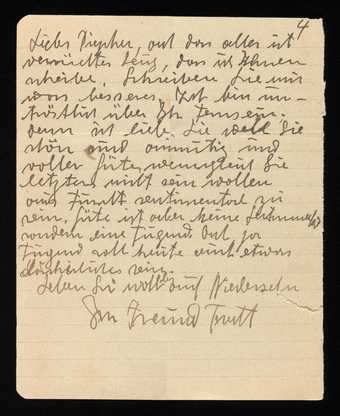 4
Liebe das alles ist
verrücktes Zeug, das ich Ihnen
schreibe. Schreiben Sie mir
was besseres. Ich bin un-
tröstlich über Ihr Fernsein.
denn ich liebe Sie weil Sie
schön und anmutig und
voller Güte, wenngleich Sie
letztere nicht sein wollen
aus Furcht sentimental zu
sein. Güte ist aber keine
sondern eine Tugend.
Tugend soll heute auch etwas
lächerliches sein.
Leben Sie wohl auf Wiedersehn
Ihr Freund